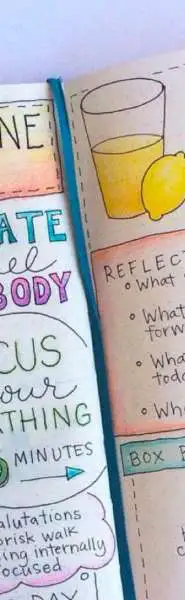 NE
ATE
BODY
CUS
our
THING
MINUTES
alutations
risk walk
ing internally
ocused
DAY
REFLECT
What
What
forw
Wha
toda
Wh
BOX B